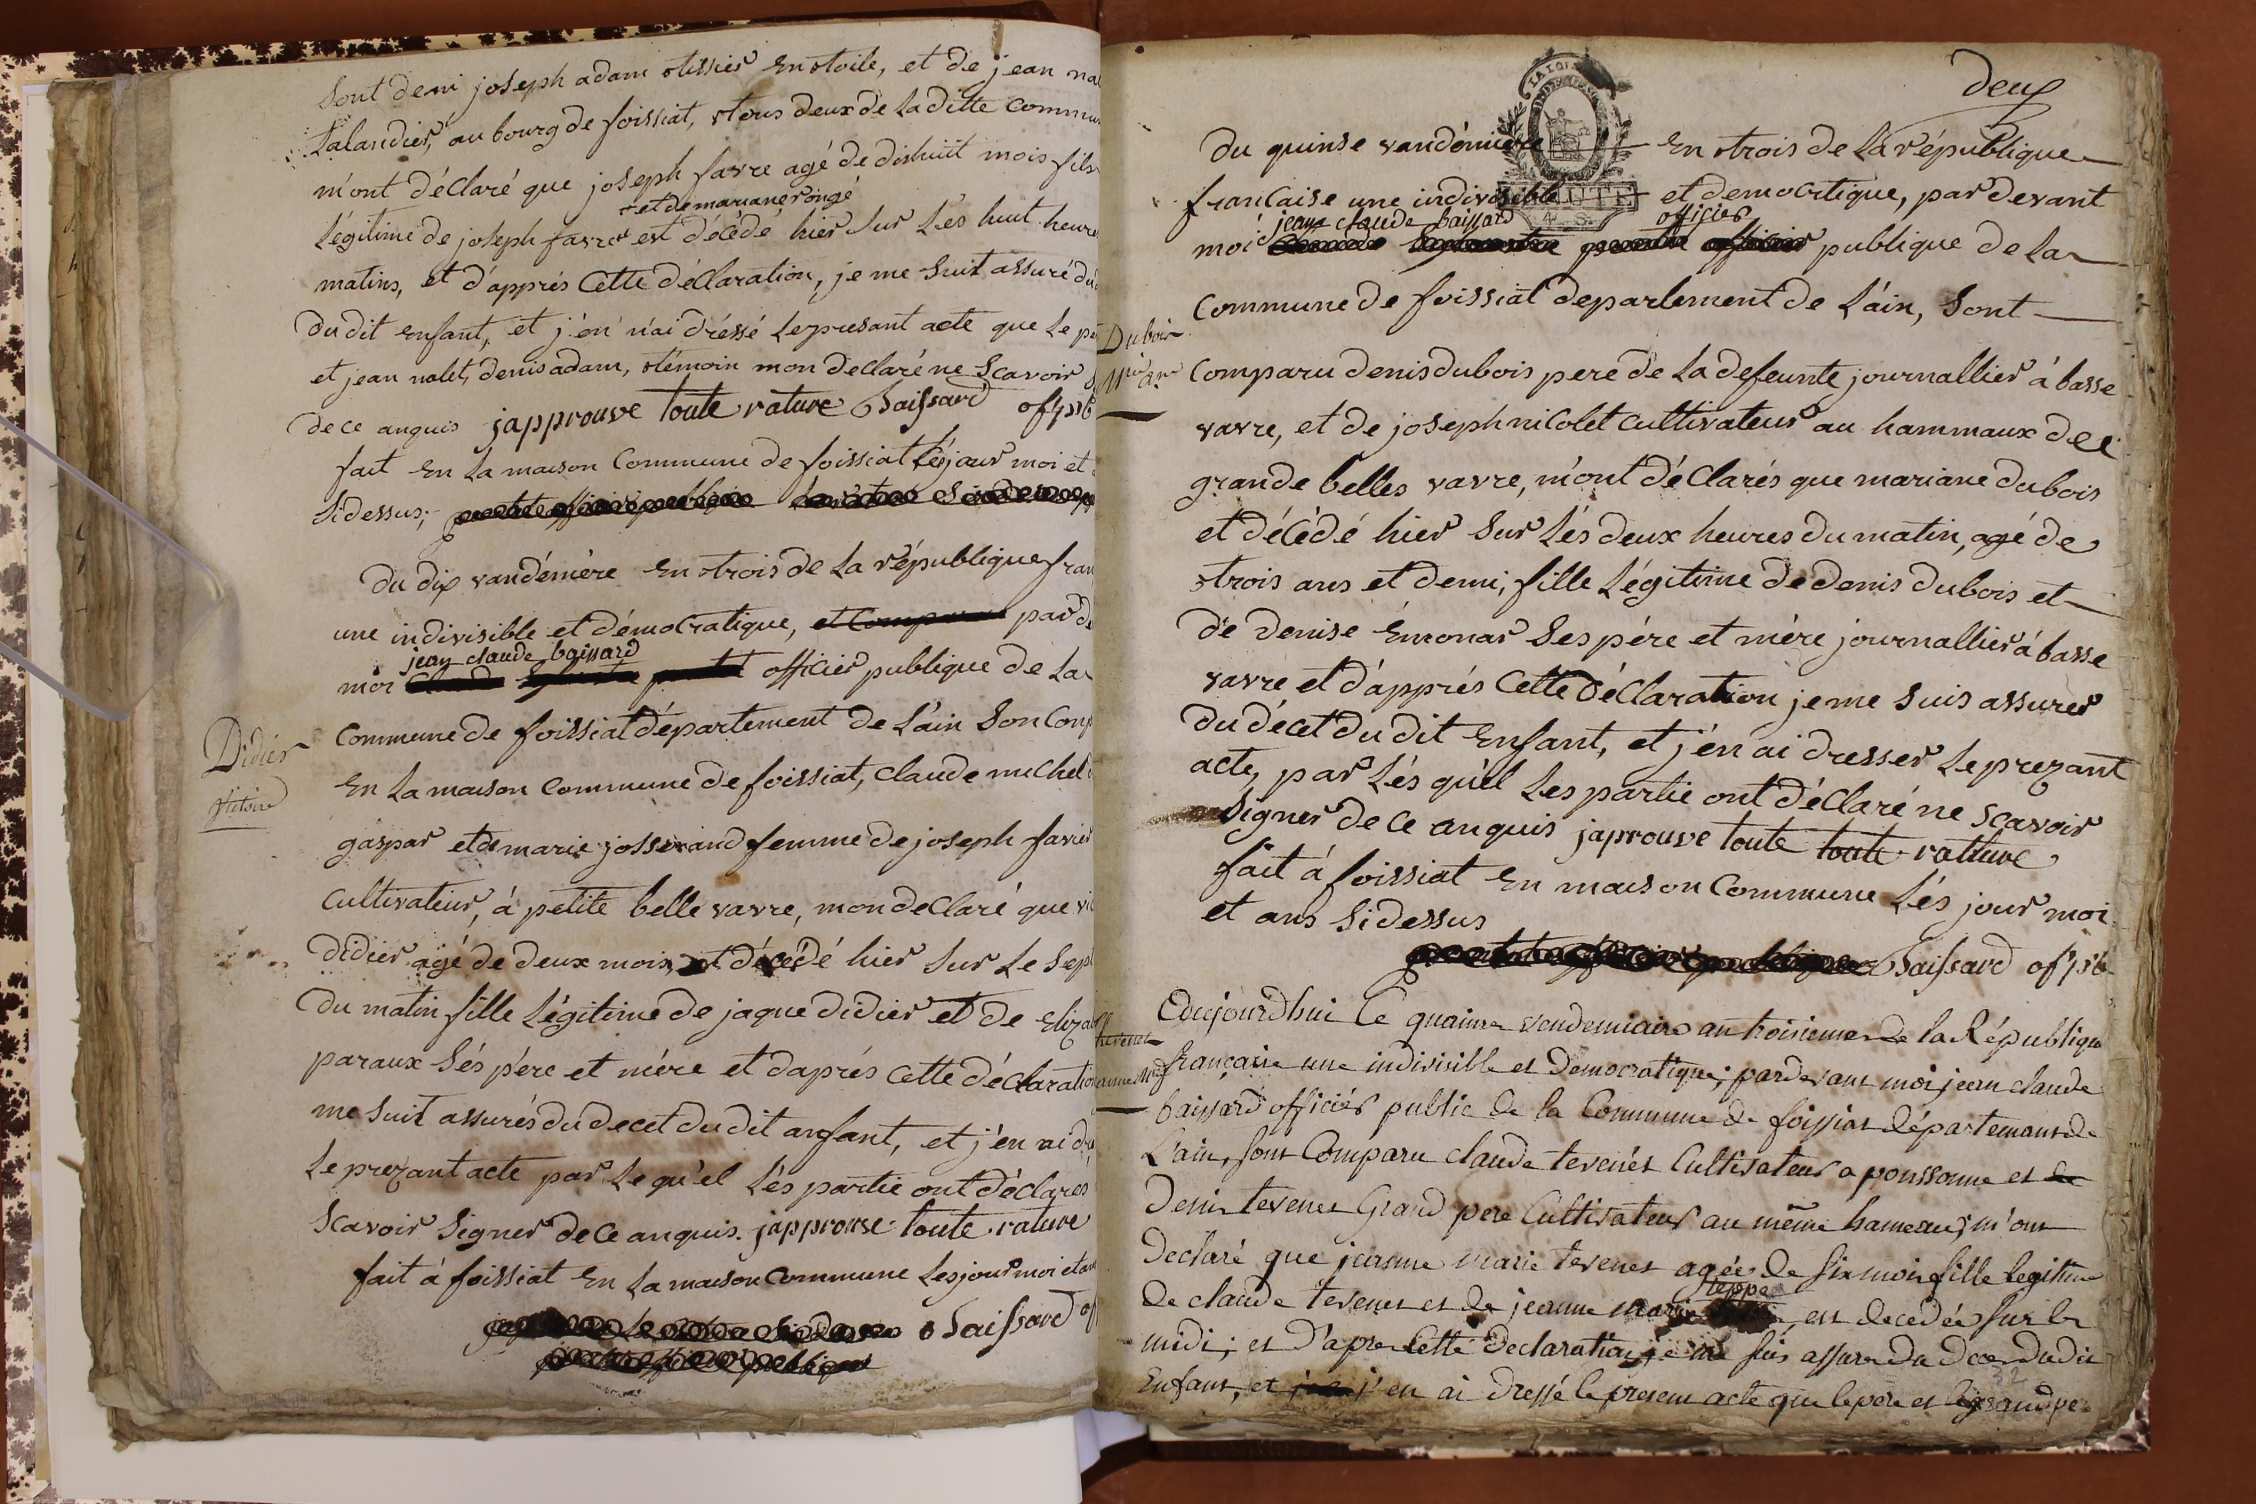 Sont deni joseph adam tissier En toile, et de jean na
Lalandier, au bourg de foissiat, tous deux de Laditte commun
m'ont déclaré que joseph favre agé de dishuit mois fils
et de mariane rongé
Légitime de joseph favre est décédé hier Sur Lés huit heure
matins, et d'apprés Cette déClaration, je me Suit assuré du
du dit Enfant, et j'en n'ai dréssé Le presant acte que Le pe
et jean nalet, denis adam, témoin mon declaré ne Scavoir
de ce anquis japprouve toute rature Baissard
fait En La maison Commune de foissiat Lésjour moi et
Sidessus,
du dix vandémére En trois de La république fran
une indivisible et démocratique, et Comparu par de
jean claude baissard
moi officier publique de La
Commune de foissiat département de L'ain Son Comp
Didier
En La maison Commune de foissiat, Claude michel
Victoire
gaspar et de marie josserand femme de joseph favier
Cultivateur, á petite belle vavre, mon deClaré que vic
didier agé de deux mois, et décédé hier Sur Le Sept
du matin fille Légitime de jaque didier et de Eliza
paraux Sés pére et mére et daprés Cette déClaration
me Suit assurés du decet du dit anfant, et j'én ai d
Le prezant acte par Le qu'el Lés partie ont déClarés
Scavoir Signer de Ce anquis. japprouve toute rature
fait á foissiat En La maison Commune Les jour moi et an
Baissard of
deux
du quinse vandémiére En trois de La république
française une indivisible et democratique, par devant
jean claude baissard officier
moi publique de La
Commune de foissiat departement de L'ain, Sont
Dubois
Comparu denis dubois pere de La defeunte journallier á basse
vavre, et de joseph nicolet Cultivateur au hammaux de
grande belles vavre, m'ont déClarés que mariane dubois
et décédé hier Sur Lés deux heures du matin, agé de
trois ans et demi, fille Légitime de denis dubois et
de denise Emonar Ses pére et mére journallier á basse
vavre et d'apprés Cette déClaration je me Suis assurer
du décet du dit Enfant, et j'én ai dresser Le prezant
acte, par Lés qu'el Les partie ont déClaré ne Scavoir
Signer de Ce anquis japrouve toute toute rature
fait á foissiat En maison Commune Lés jour moi
et ans Sidessus
Baissard
Edujourdhui le quainse vendemiaire an troisieme de la République
française une indivisible et democratique; pardevant moi jean claude
baissard officiér public de la Commune de foissiat département de
L'ain, sont Comparu claude tevenét Cultivateur a ponssonne et de
denis tevenet Grand pere Cultivateur au même hameau; m'ont
declaré que jeanne marie tevenet agée de six mois fille legitime
teppe
de claude tevenet et de jeanne marie est decedée sur le
midi; et d'apres Cette declaration, je me suis assure du deces du dit
Enfant, et j'en ai dressé le present acte que le pere et le grand pe
32